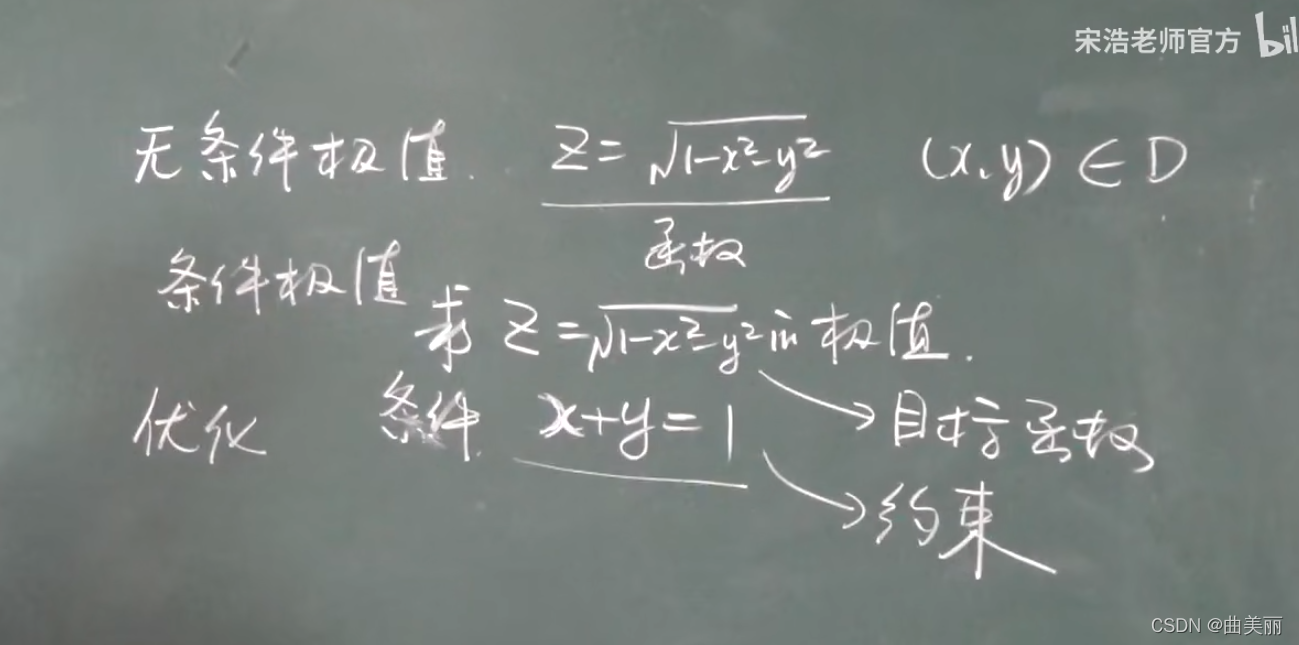 宋浩老师官方 bil
无条件极值. z=√1-x²-y² (x,y)∈D
函数
条件极值
求 z=√1-x²-y² 的极值.
优化 条件 x+y=1 → 目标函数
→ 约束
CSDN @曲美丽